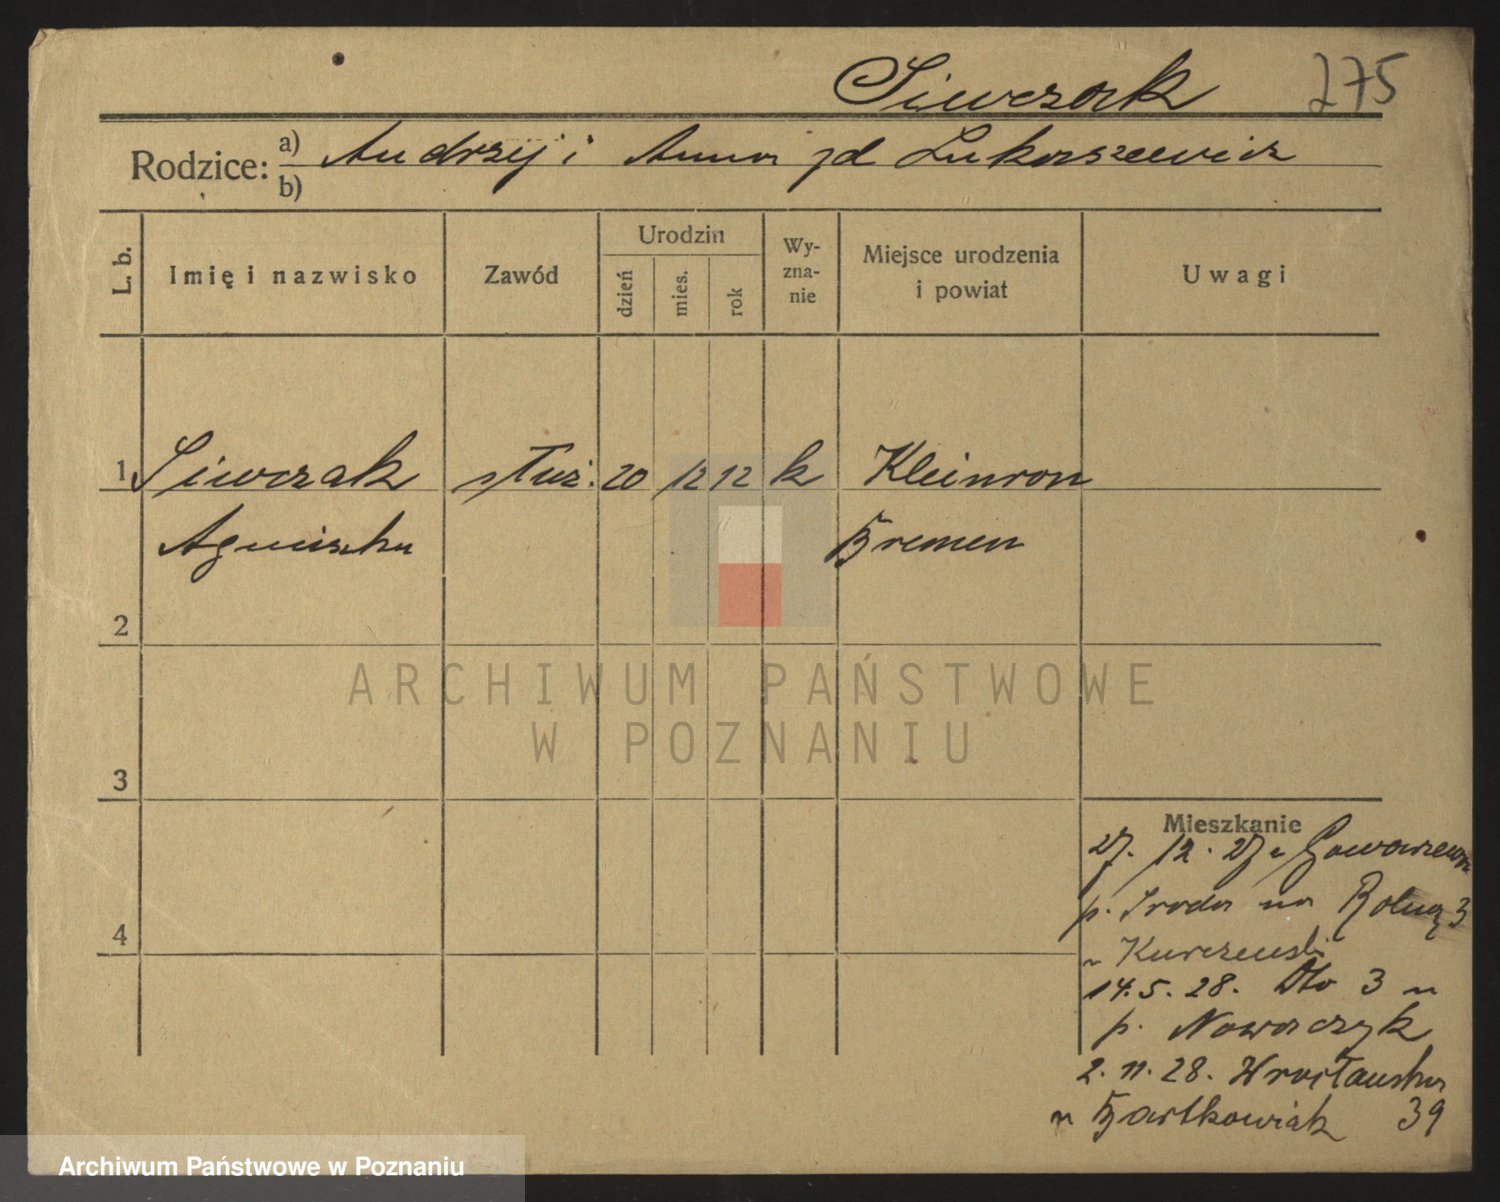 Siwczak 275
Rodzice: a) Andrzej i Anna zd Łukaszewicz
b)
L. b. Imię i nazwisko Zawód Urodzin dzień mies. rok Wy-zna-nie Miejsce urodzenia i powiat Uwagi
1 Siwczak służ. 20 12 12 k Kleinron
Agnieszka Bremen
2
3
4
ARCHIWUM PAŃSTWOWE
W POZNANIU
Mieszkanie
27. 12. 27 z
p. Środa na Rolną 3
u Kurczewski
14. 5. 28. Dto 3 u
p. Nowaczyk
2. 11. 28. Wrocławska
u Bartkowiak 39
Archiwum Państwowe w Poznaniu